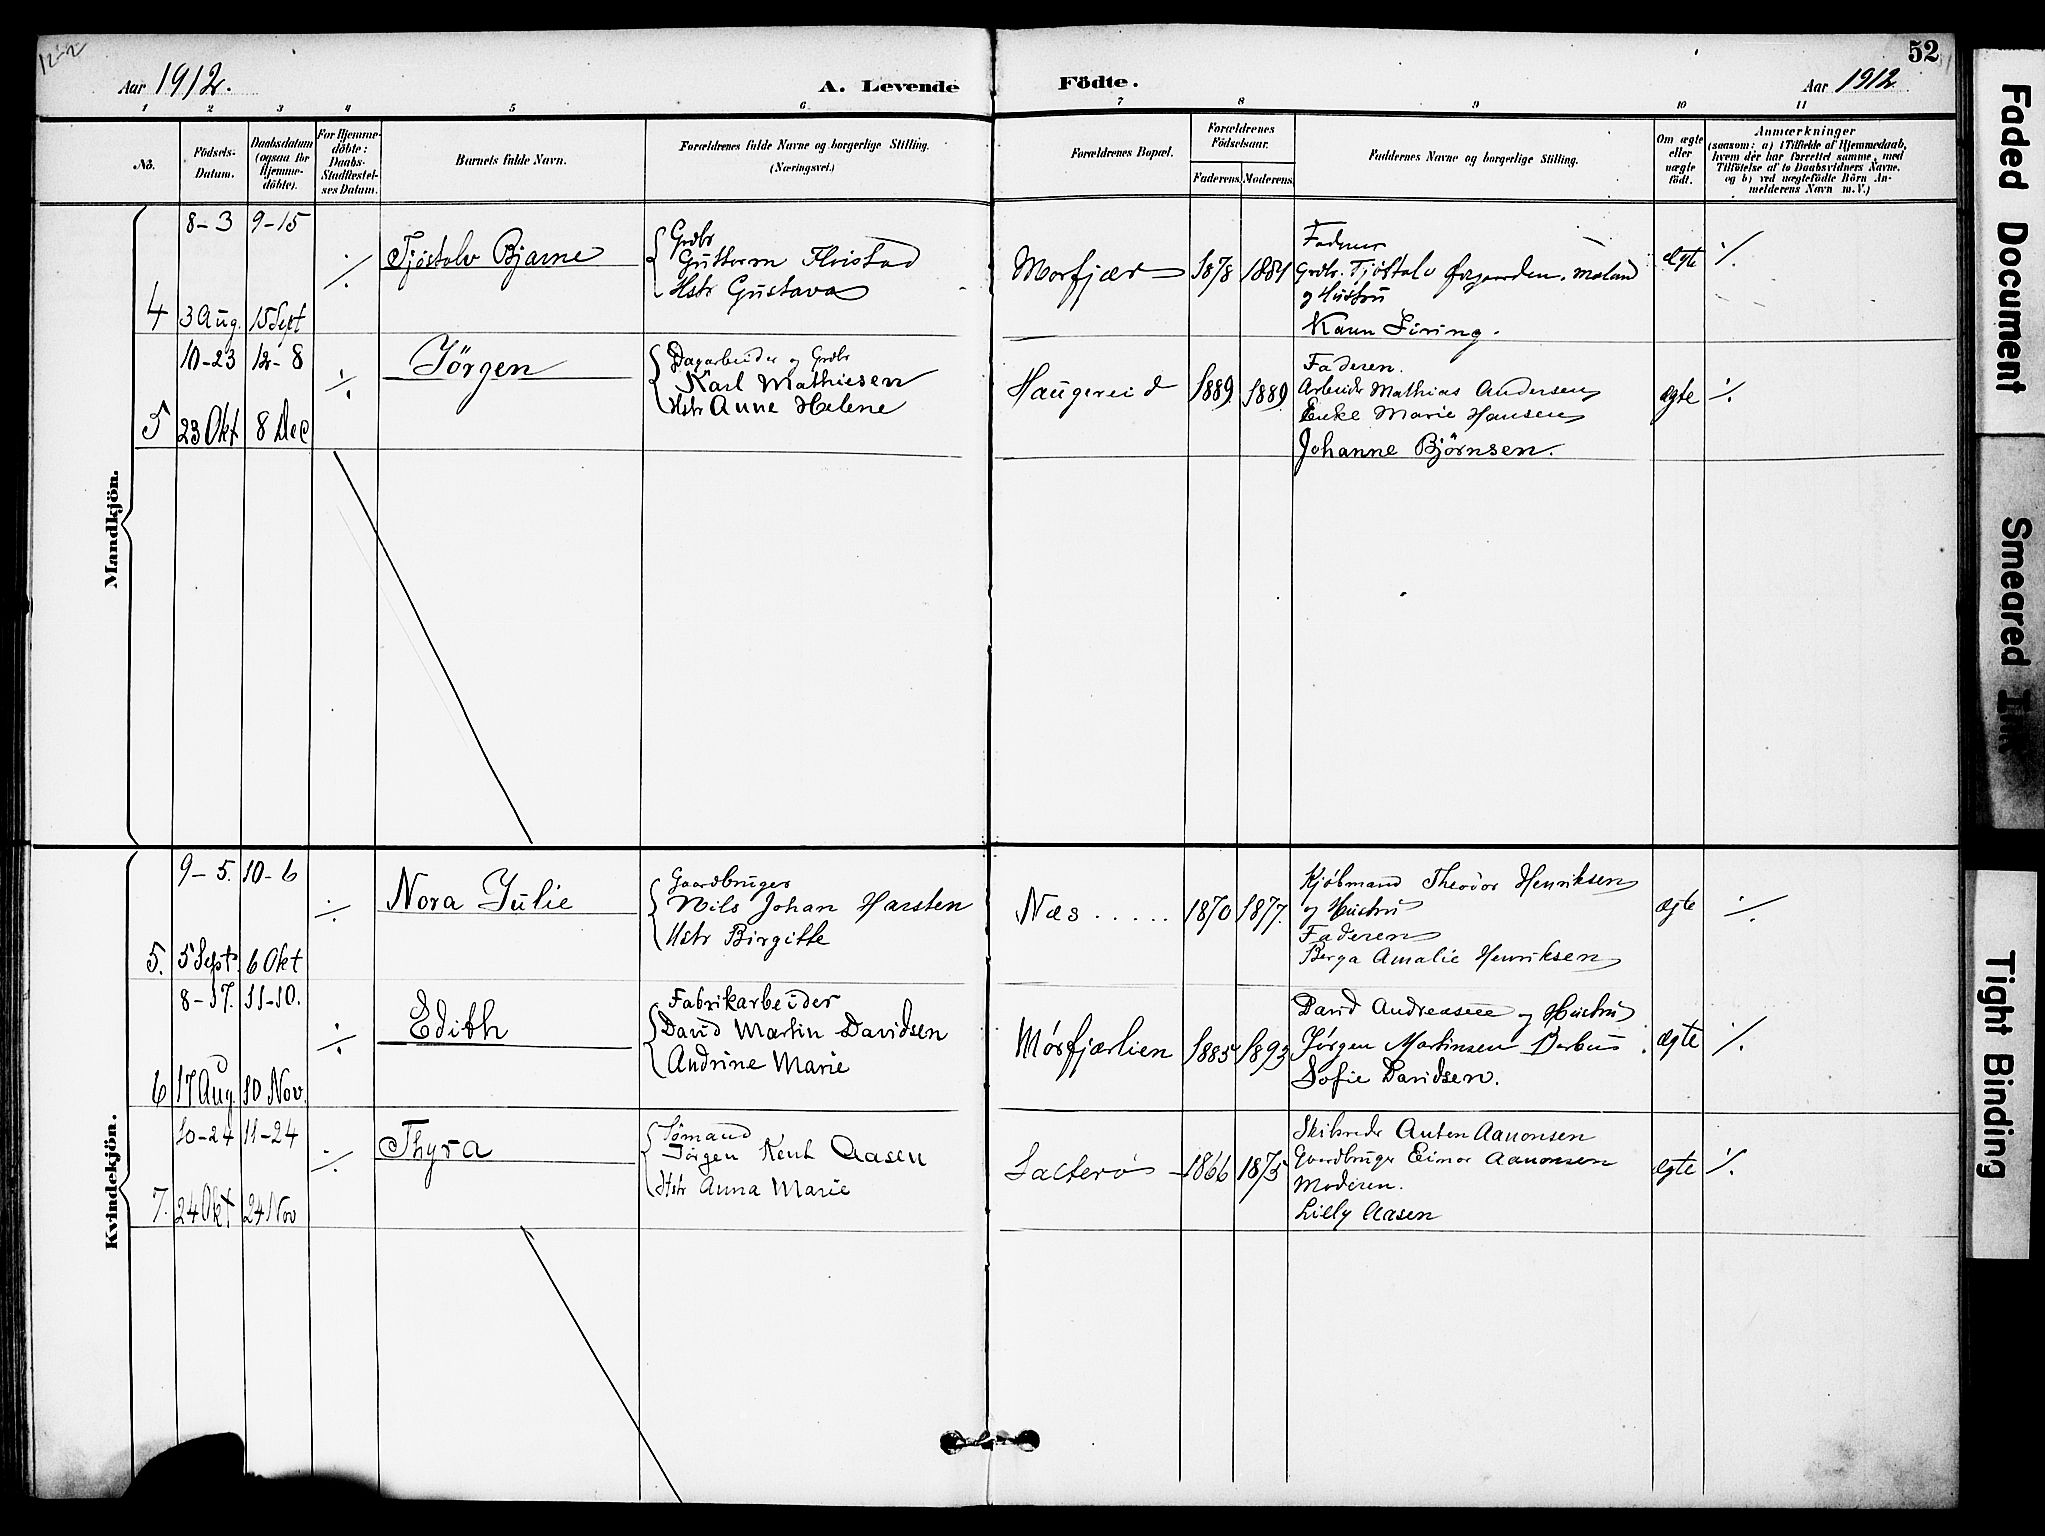 12-2
Aar 1912.
A. Levende
Födte.
Aar 1912
52
1 2 3 4 5 6 7 8 9 10 11
Nö.
Födsels-
Datum.
Daabsdatum
(ogsaa for
Hjemme-
döbte).
For Hjemme-
döbte:
Daabs-
Stadfæstel-
ses Datum.
Barnets fulde Navn.
Forældrenes fulde Navne og borgerlige Stilling.
(Næringsvei.)
Forældrenes Bopæl.
Forældrenes
Födselsaar.
Faderens. Moderens.
Faddernes Navne og borgerlige Stilling.
Om ægte
eller
uægte
födt.
Anmærkninger
(saasom: a) i Tilfælde af Hjemmedaab,
hvem der har forrettet samme, med
Tilföielse af to Daabsvidners Navne,
og b) ved uægtefödte Börn An-
melderens Navn m. V.)
Mandkjön.
4
8-3
3 Aug.
9-15
15 Sept
÷
Tjöstolv Bjarne
Grdbr
Guttorm
Hstr Gustava
Morfjær
1878
1881
Faderen
Grdbr. Tjöstolv
og Hustru
ægte
÷
5
10-23
23 Okt
12-8
8 Dec
÷
Jörgen
Dagarbeider og Grdbr
Karl Mathiesen
Hstr Anne Helene
Haugereid
1889
1889
Faderen.
Arbeider Mathias Andersen
Enke Marie Hansen
Johanne Björnsen.
ægte
÷
Kvindekjön.
5.
9-5.
5 Sept.
10-6
6 Okt
÷
Nora Julie
Gaardbruger
Nils Johan Harsten
Hstr Birgitte
Næs
1870
1877.
Kjöbmand Theodor Henriksen
og Hustru
Faderen
Berga Amalie Henriksen
ægte
÷
6
8-17.
17 Aug.
11-10.
10 Nov.
÷
Edith
Fabrikarbeider
David Martin Davidsen
Andrine Marie
Mörfjærlien
1885
1893
David Andreasen og Hustru
Jørgen Martinsen
Sofie Davidsen.
ægte
÷
7.
10-24
24 Okt
11-24
24 Nov
÷
Thyra
Sömand
Jörgen Kent Aasen
Hstr Anna Marie
Sælterö
1866
1875
Skibsreder Anton Aanonsen
Gaardbruger Einar Aanonsen
Moderen.
Lilly Aasen
ægte
÷
Faded Document
Smeared Ink
Tight Binding